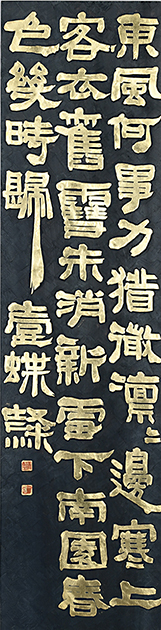 東風何事力猶微凛〻邊寒上
客衣舊雪未消新雪下南園春
色幾時歸 壹蝶